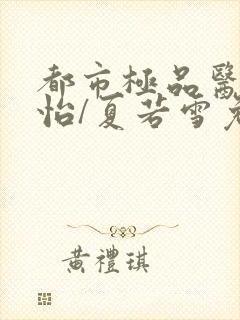 都市極品醫
怡/夏若雪
黃禮琪